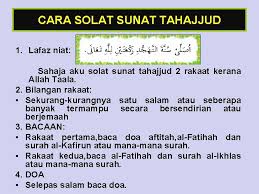 CARA SOLAT SUNAT TAHAJJUD
1. Lafaz niat:
أُصَلِّيْ سُنَّةَ التَّهَجُّدِ رَكْعَتَيْنِ لِلّٰهِ تَعَالَى
Sahaja aku solat sunat tahajjud 2 rakaat kerana
Allah Taala.
2. Bilangan rakaat:
• Sekurang-kurangnya satu salam atau seberapa
banyak termampu secara bersendirian atau
berjemaah
3. BACAAN:
• Rakaat pertama,baca doa aftitah,al-Fatihah dan
surah al-Kafirun atau mana-mana surah.
• Rakaat kedua,baca al-Fatihah dan surah al-Ikhlas
atau mana-mana surah.
4. DOA
• Selepas salam baca doa.